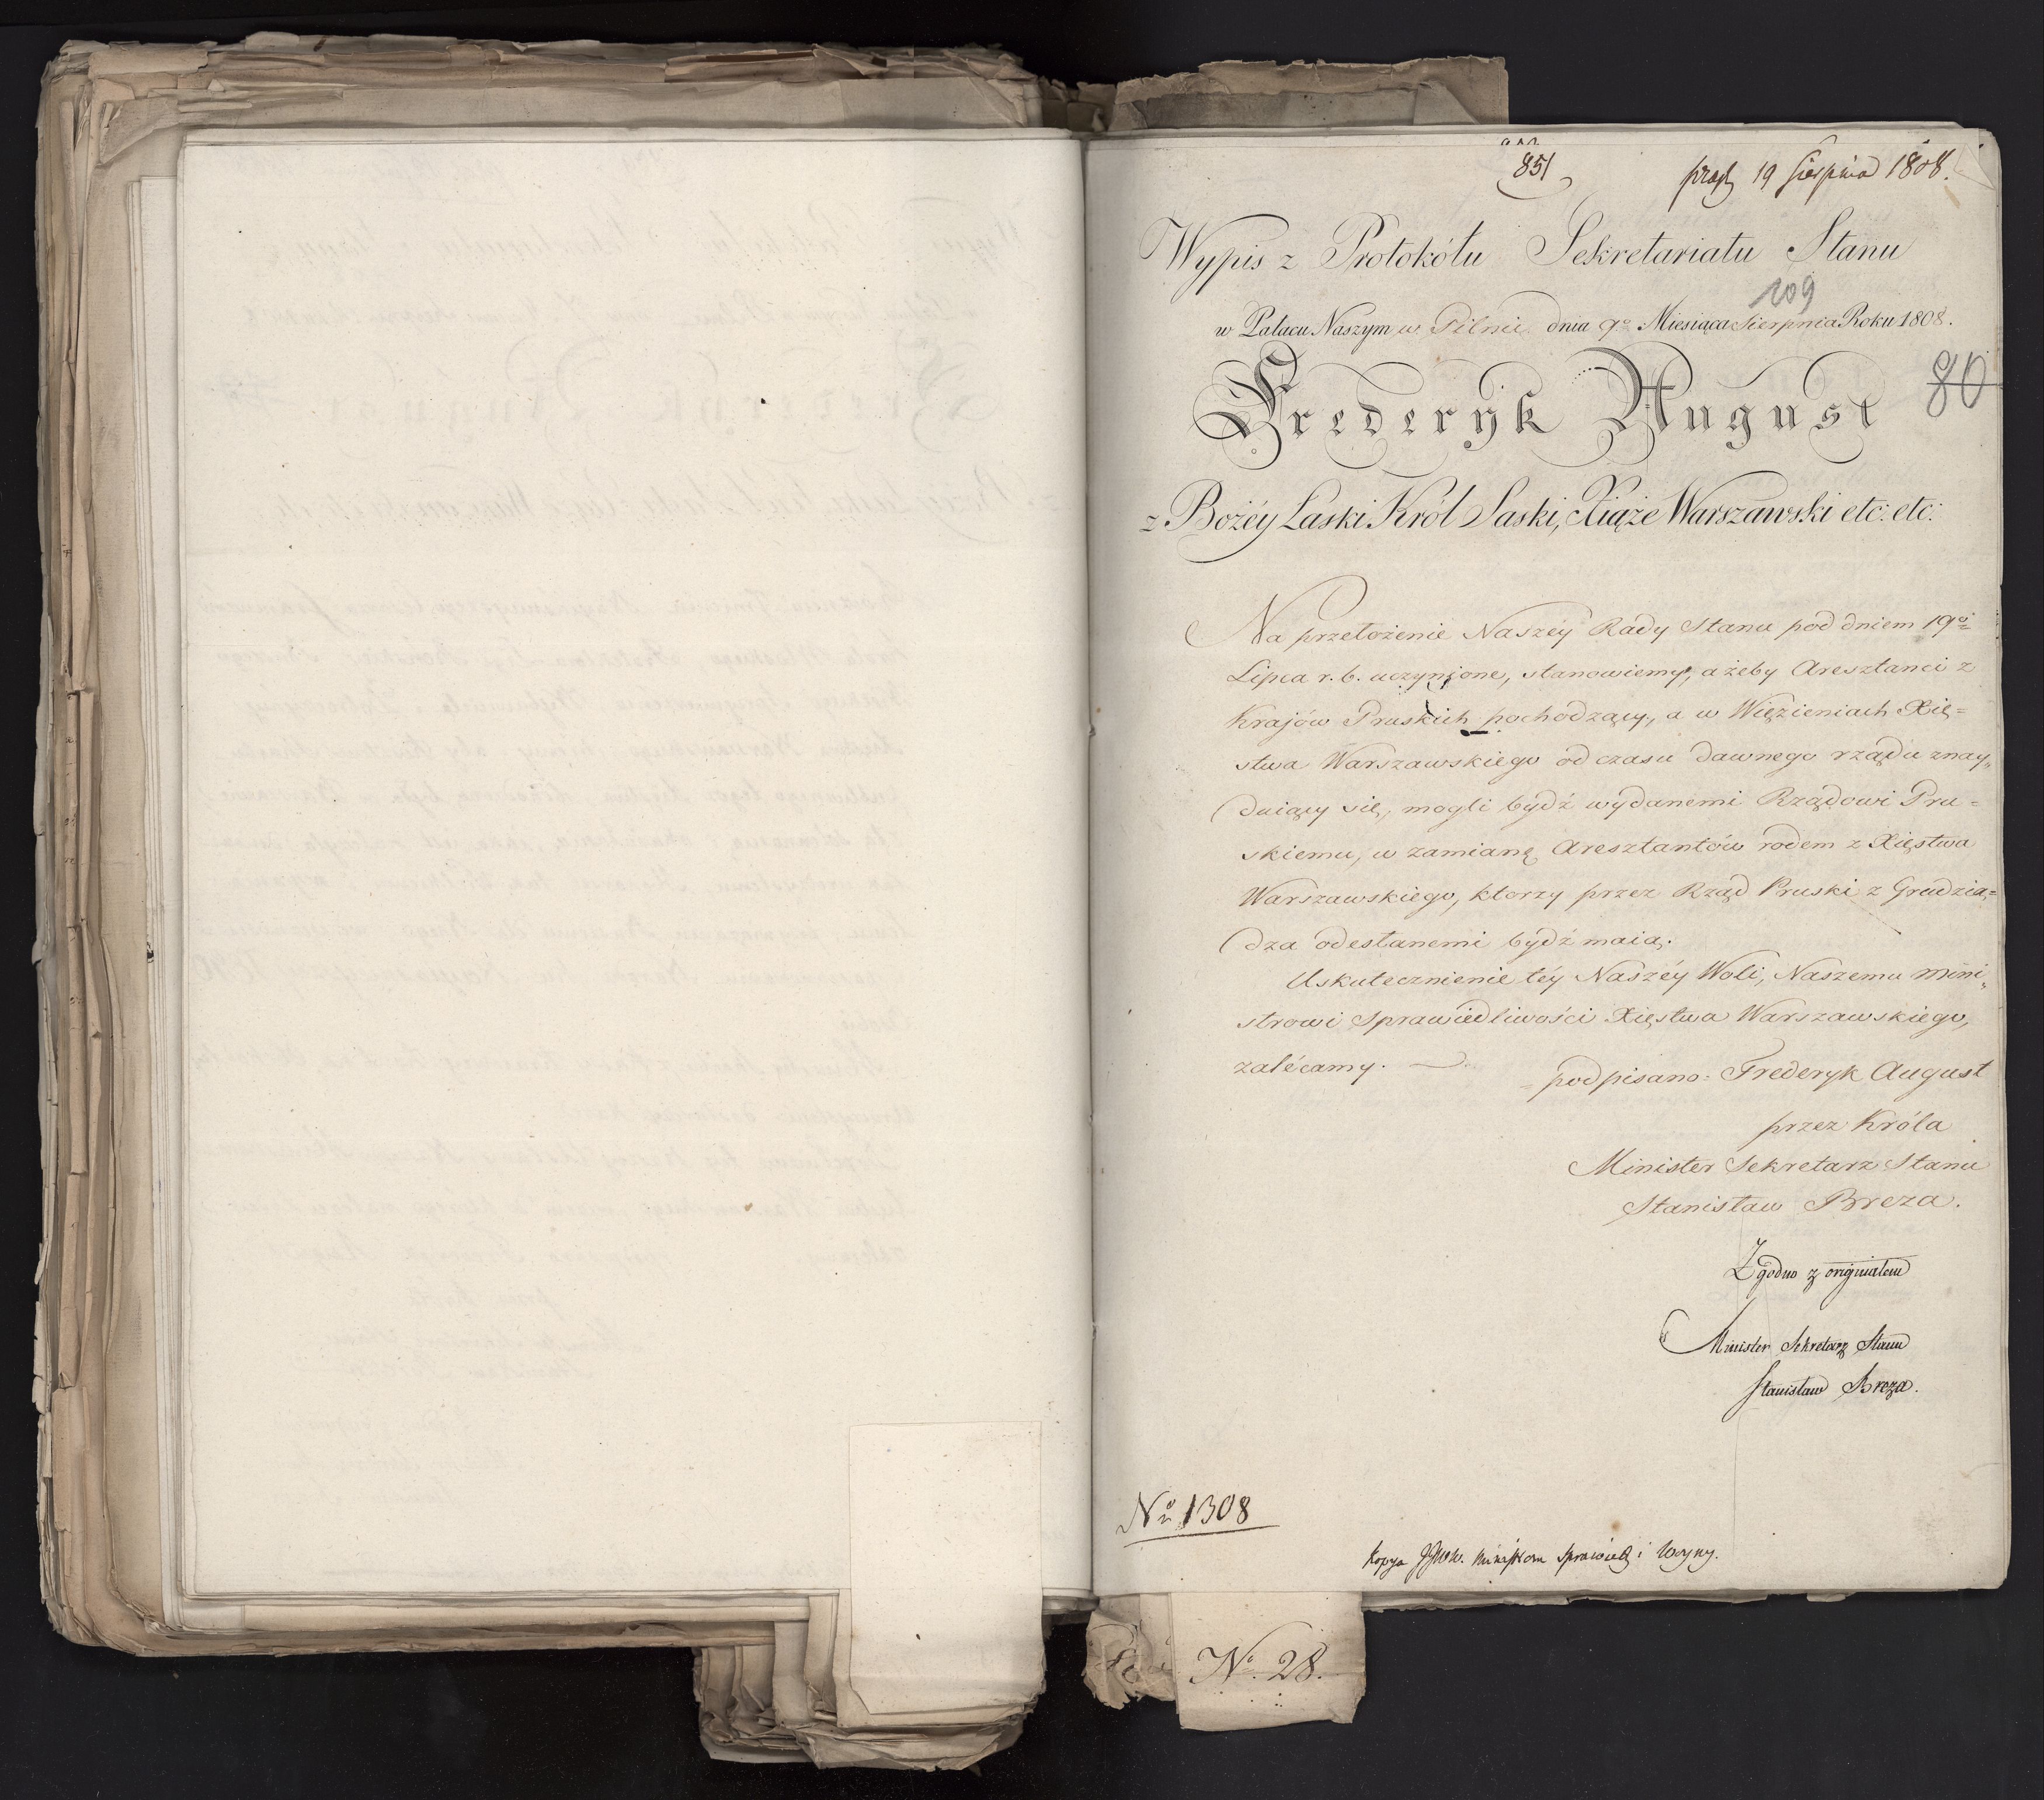 851
19 Sierpnia 1808.
Wypis z Protokółu Sekretariatu Stanu
109
w Pałacu Naszym w Pilnic dnia 9º Miesiąca Sierpnia Roku 1808.
80
Frederyk August
z Bożéy Łaski Król Saski, Xiąże Warszawski etc: etc:
Na przełożenie Naszéy Rady Stanu pod dniem 19º
Lipca r. b. uczynione, stanowiemy, ażeby Aresztanci z
Krajów Pruskich pochodzący, a w Więzieniach Xię=
stwa Warszawskiego od czasu dawnego rządu znay„
duiący się, mogli bydź wydanemi Rządowi Pru=
skiemu, w zamianę Aresztantów rodem z Xięstwa
Warszawskiego, ktorzy przez Rząd Pruski z Grudzią=
dza odesłanemi bydź maią.
Uskutecznienie téy Naszéy Woli, Naszemu Mini„
strowi Sprawiedliwości Xięstwa Warszawskiego,
zalécamy.
= podpisano: Frederyk August
przez Króla
Minister Sekretarz Stanu
Stanisław Breza.
Zgodno z originałem
Minister Sekretarz Stanu
Stanisław Breza.
Nº 1308
Kopya Ministrom Sprawiedl i Woyny.
Nº. 28.